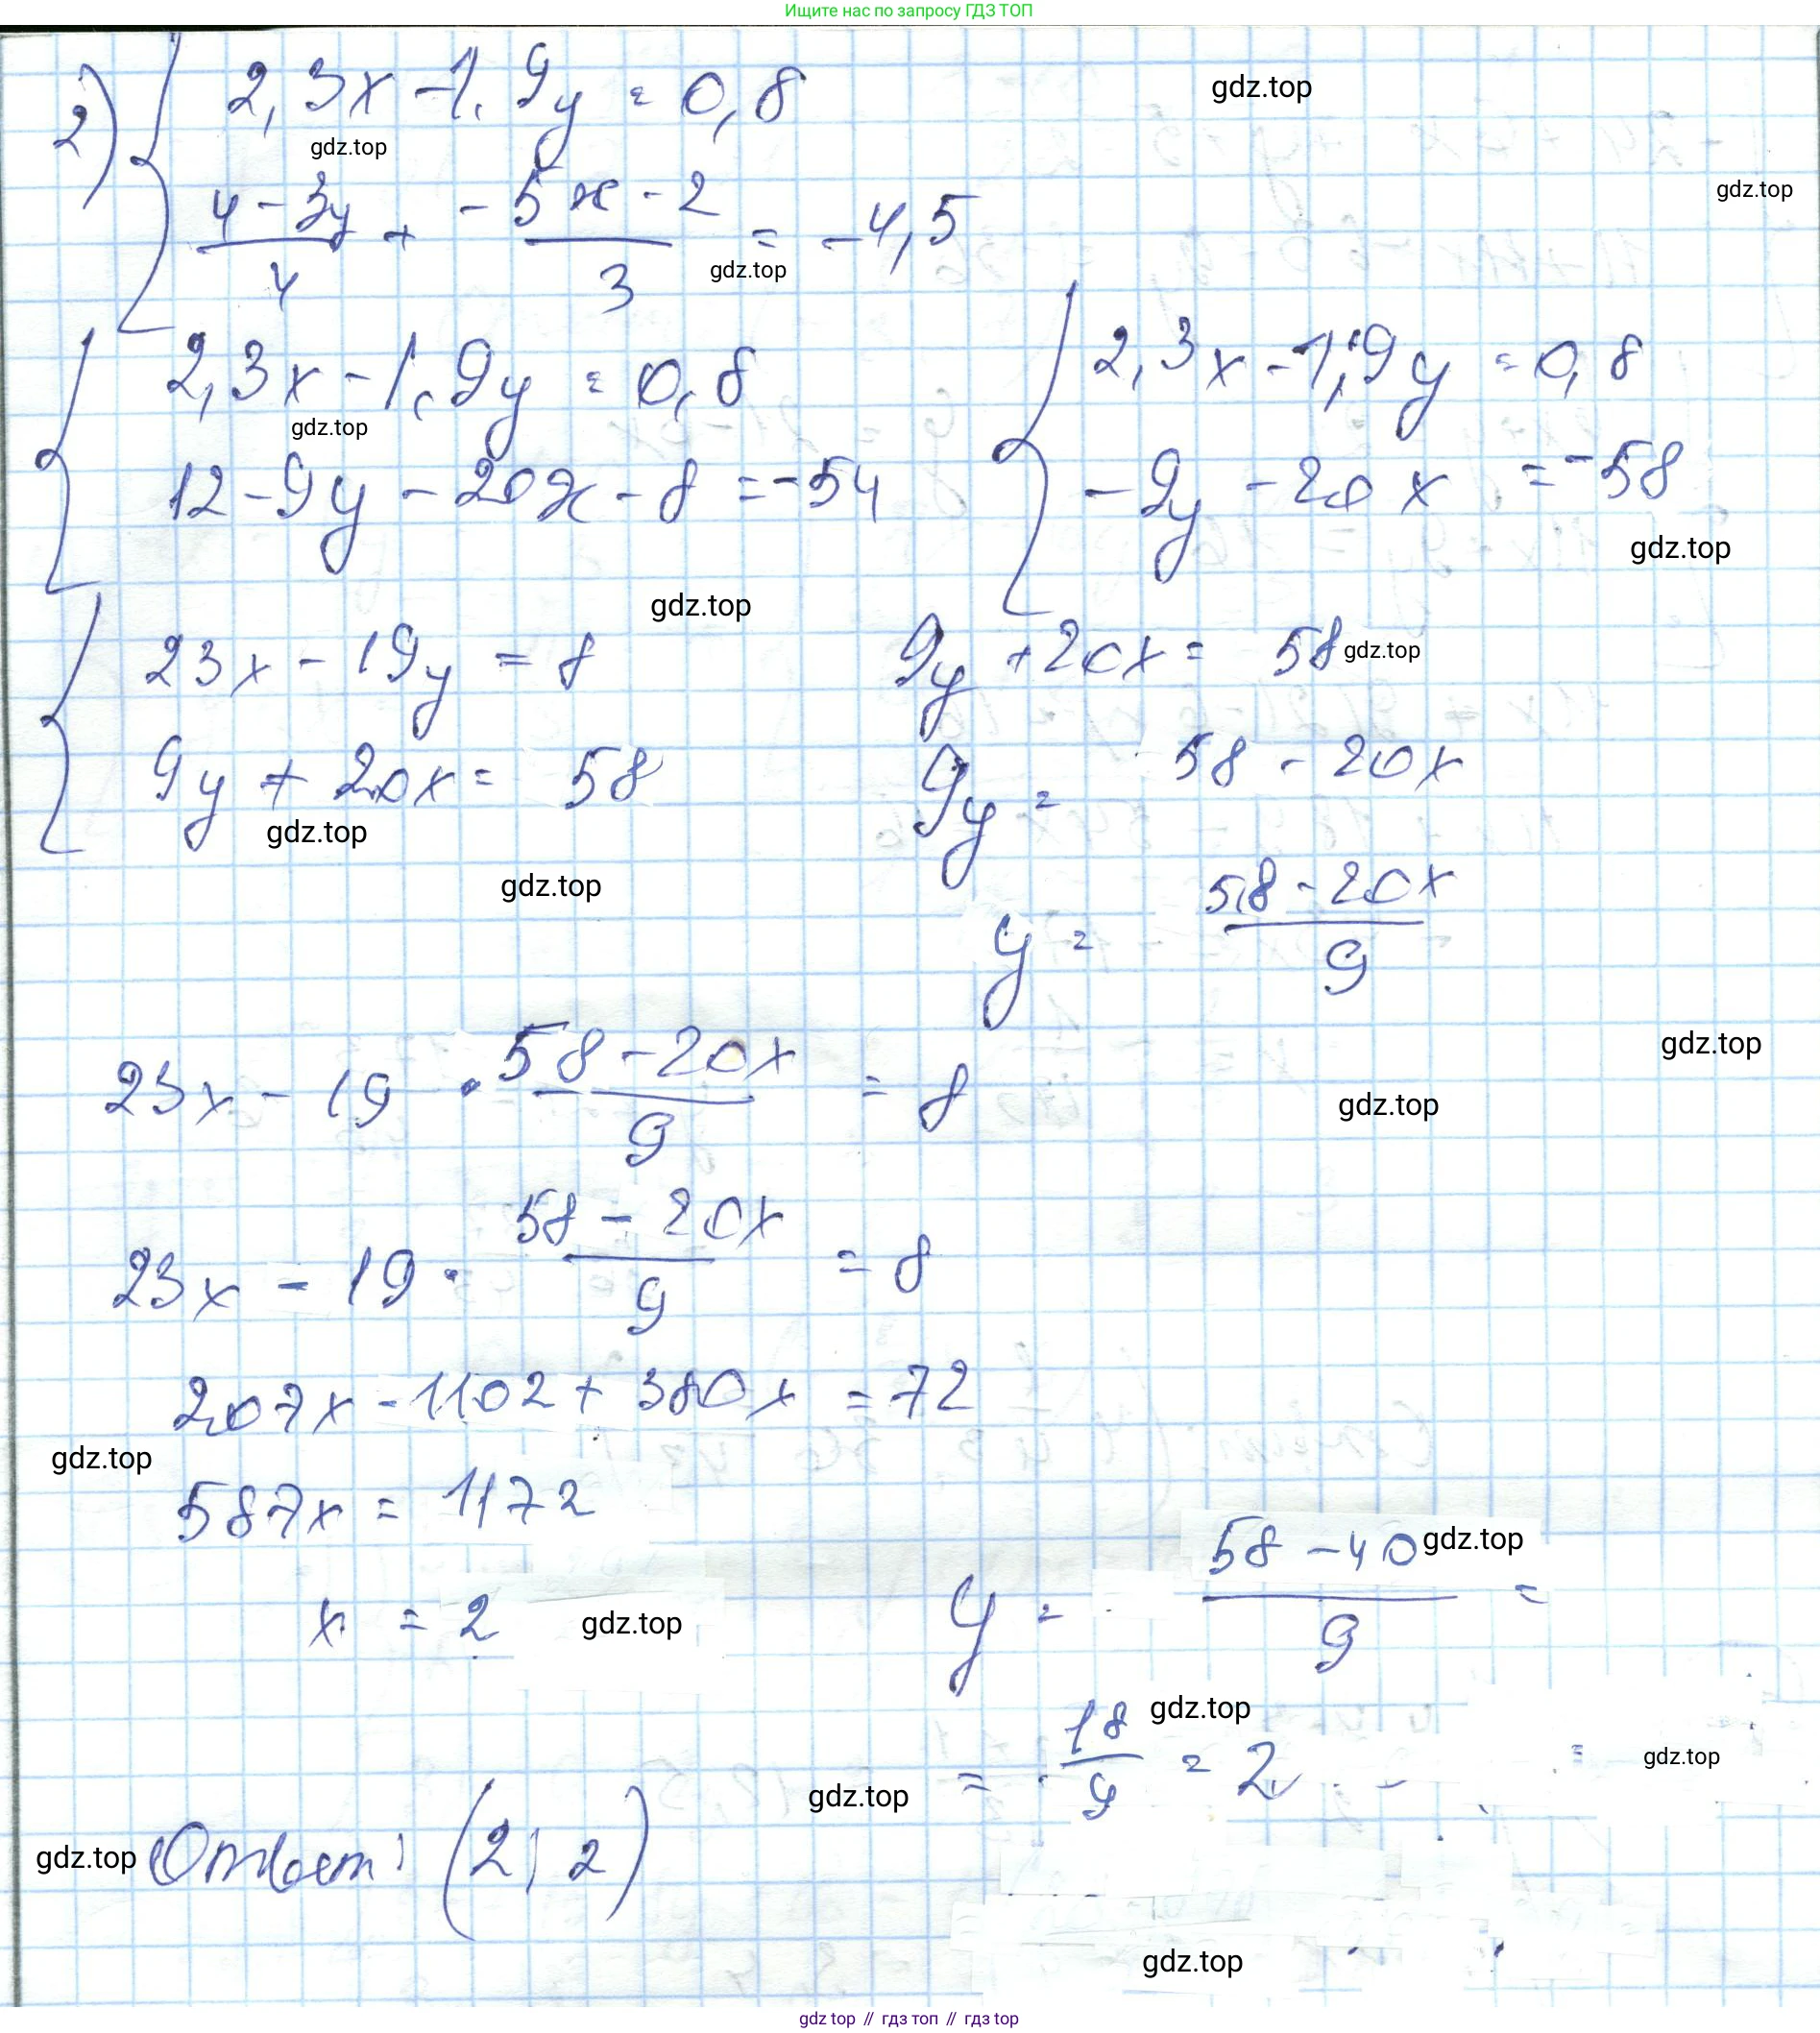 Ищите нас по запросу ГДЗ ТОП
2) { 2,3x - 1,9y = 0,8
gdz.top
gdz.top
(4 - 3y)/4 + (-5x - 2)/3 = -4,5
gdz.top
gdz.top
{ 2,3x - 1,9y = 0,8
{ 2,3x - 1,9y = 0,8
gdz.top
12 - 9y - 20x - 8 = -54
-9y - 20x = -58
gdz.top
gdz.top
{ 23x - 19y = 8
9y + 20x = 58
gdz.top
9y + 20x = 58
9y = 58 - 20x
gdz.top
gdz.top
y = (58 - 20x)/9
gdz.top
23x - 19 · (58 - 20x)/9 = 8
gdz.top
23x - 19 · (58 - 20x)/9 = 8
207x - 1102 + 380x = 72
gdz.top
587x = 1172
x = 2
gdz.top
y = (58 - 40)/9 =
gdz.top
= 18/9 = 2
gdz.top
gdz.top
gdz.top
gdz.top
Ответ: (2; 2)
gdz.top
gdz top // гдз топ // гдз top